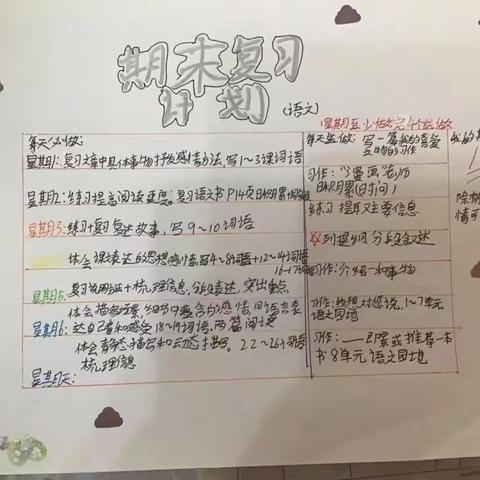 期末复习
计划
(语文)
星期五必做完4个选做
每天必做：
每天选做：写一篇我的喜爱
星期1：复习文章中具体事物抒发感情方法，写1~3课词语
的习作
习作："漫画"老师
星期2：练习提高阅读速度，复习语文书P14页日积月累
日积月累(旧时间)
练习提取主要信息
星期3：练习复述故事，写9~10词语
列提纲分段叙述
体会课文表达的思想感情写4~8词语+12~14词语
16~17词语
习作：介绍一种事物
星期5：复习说明文+梳理信息，分段表达，突出重点
体会描写场景，细节中蕴含的感情，用语言表
习作：我想对您说，1~7单元
语文园地
星期6：达自己看和感受 18~19词语，两篇阅读
习作：
推荐一本
体会静态描写和动态描写。22~26词语
书 8单元语文园地
梳理信息
星期天：